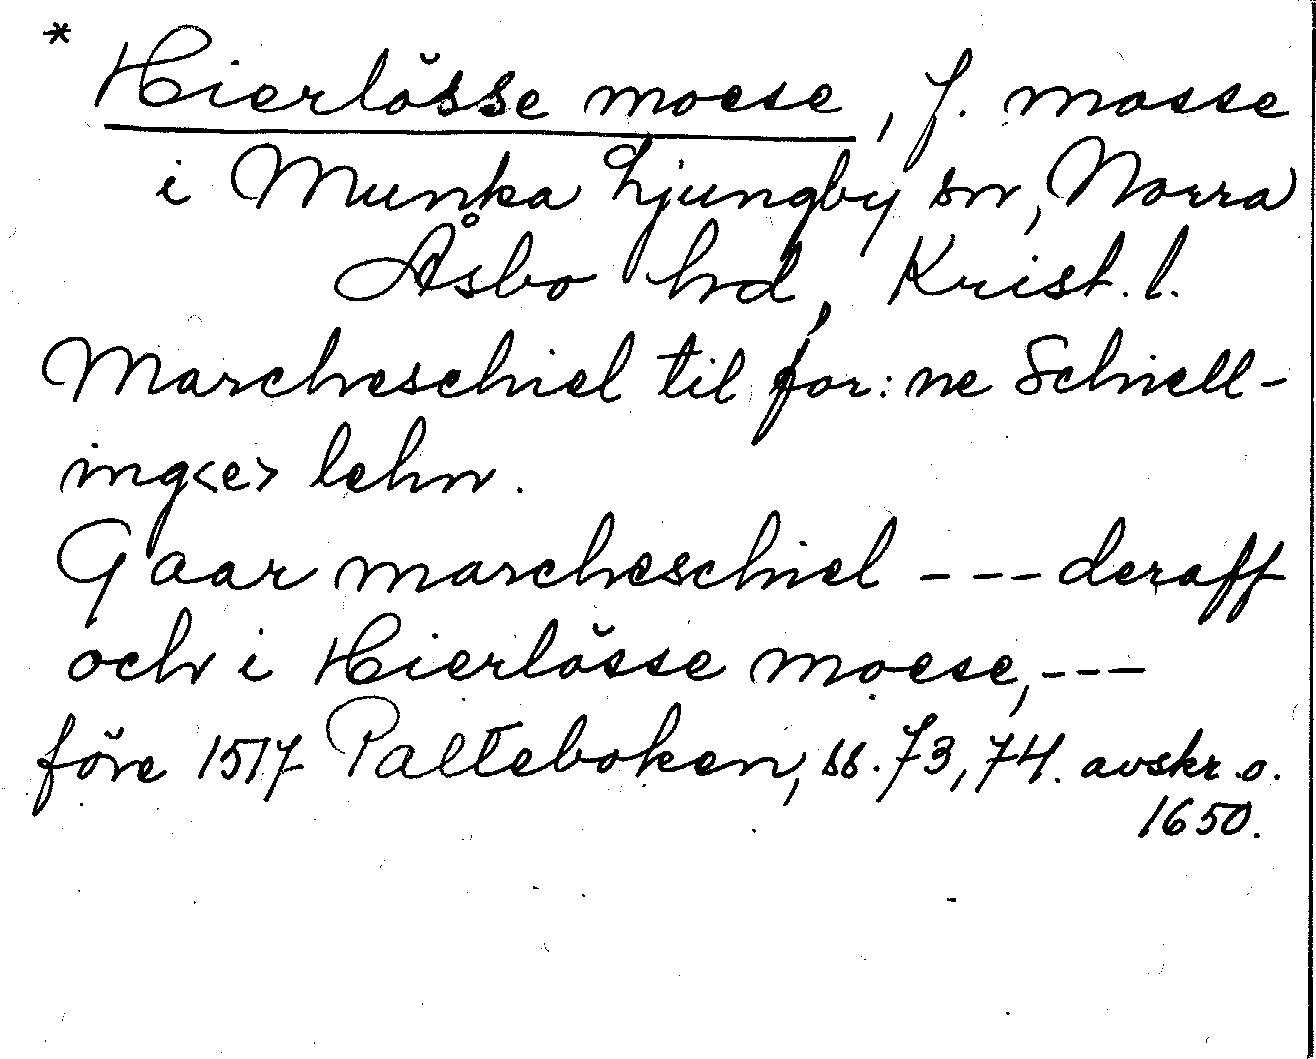 * Hierlösse moese, f. mosse
i Munka Ljungby sn, Norra
Åsbo hd, Krist. l.
Marcheschiel til for:ne Schnell-
ing<e> lehn.
Gaar marcheschiel --- deraff
och i Hierlösse moese, ---
före 1517 Palteboken, ss. 73, 74. avskr. o.
1650.